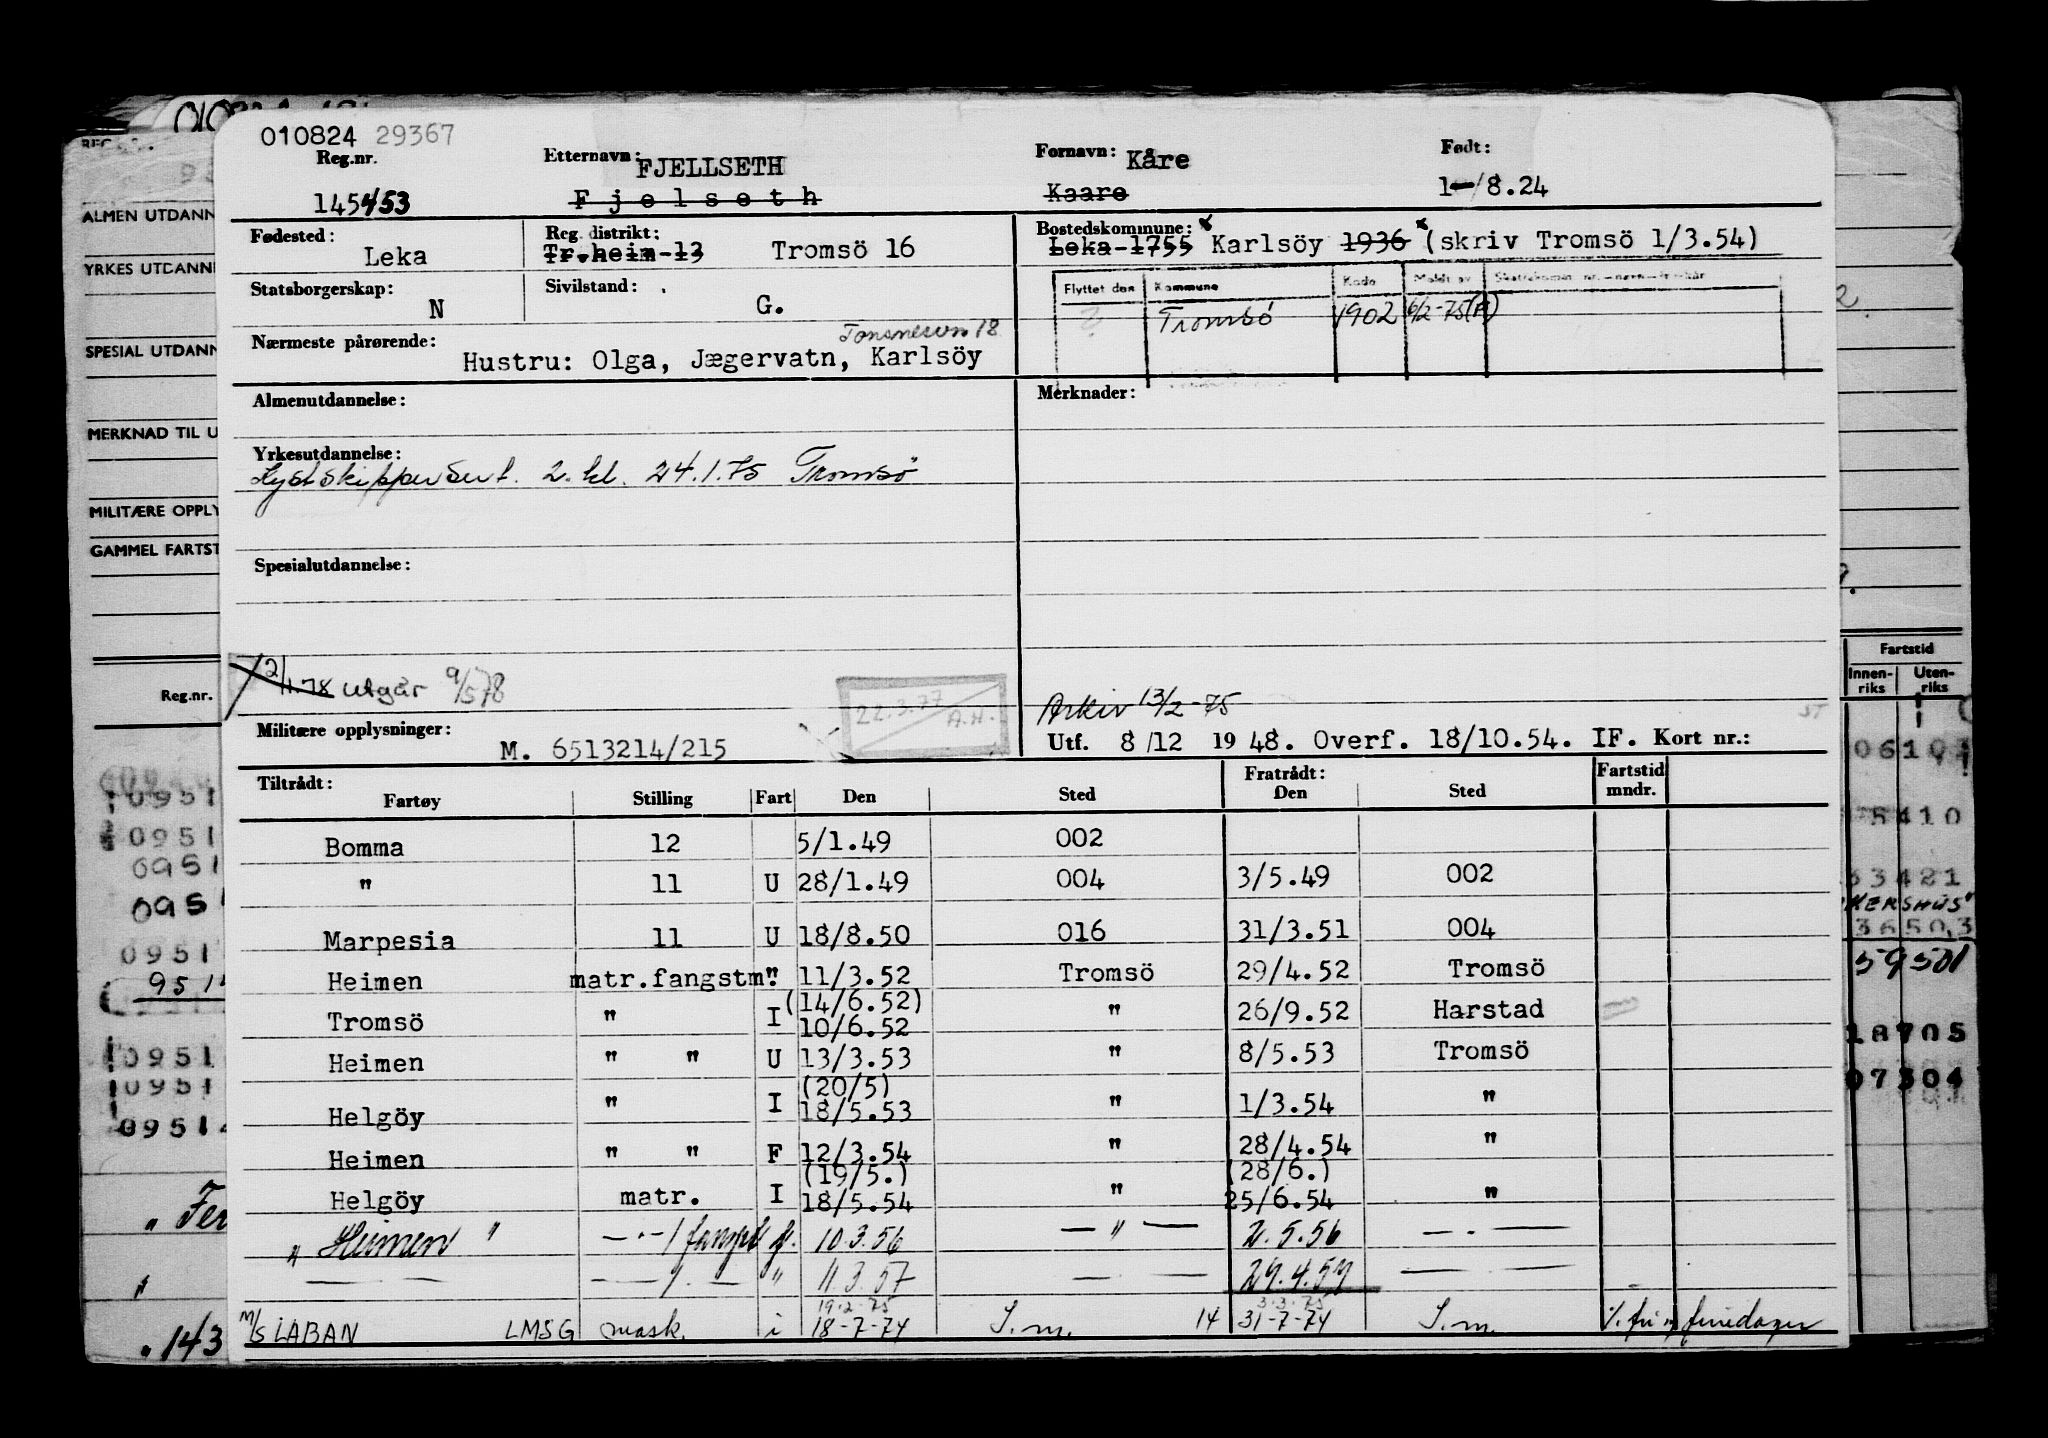 010824 29367
Reg.nr. Etternavn: FJELLSETH Fornavn: Kåre Født:
145453 Fjelseth Kaare 1-/8.24
Fødested: Leka Reg. distrikt: Tr.heim-13 Tromsö 16 Bostedskommune: Leka-1755 Karlsöy 1936 (skriv Tromsö 1/3.54)
Statsborgerskap: N Sivilstand: G. Flyttet den Kommune Kode Meldt av
Tromsö 1902 6/2-75(A)
Nærmeste pårørende: Tonsnesvn 18
Hustru: Olga, Jægervatn, Karlsöy
Almenutdannelse: Merknader:
Yrkesutdannelse:
Kystskippersert. 2. kl. 24.1.75 Tromsö
Spesialutdannelse:
2/1.78 utgår 9/578
22.3.77/A.H.
Arkiv 13/2-75
Militære opplysninger: M. 6513214/215 Utf. 8/12 1948. Overf. 18/10.54. IF. Kort nr.:
Tiltrådt: Fratrådt: Fartstid
Fartøy Stilling Fart Den Sted Den Sted mndr.
Bomma 12 5/1.49 002
" 11 U 28/1.49 004 3/5.49 002
Marpesia 11 U 18/8.50 016 31/3.51 004
Heimen matr.fangstm. " 11/3.52 Tromsö 29/4.52 Tromsö
(14/6.52)
Tromsö " I 10/6.52 " 26/9.52 Harstad
Heimen " " U 13/3.53 " 8/5.53 Tromsö
(20/5)
Helgöy " I 18/5.53 " 1/3.54 "
Heimen " " F 12/3.54 " 28/4.54 "
(19/5.) (28/6.)
Helgöy matr. I 18/5.54 " 25/6.54 "
" Heimen " -"-/fangst f. 10.3.56 — " — 2.5.56 — " —
— — — — " 11.3.57 — — 29.4.57 — —
19.2.75 3.3.75
M/S LABAN LMSG mask. i 18-7-74 S.m. 14 31-7-74 S.m.
ALMEN UTDANN
YRKES UTDANNE
SPESIAL UTDANN
MERKNAD TIL U
MILITÆRE OPPLY
GAMMEL FARTST
Reg.nr.
0951
0951
0951
0951
0951
951
0951
0951
0951
" Fer
"
" 143
Fartstid
Innen-riks Uten-riks
5410
33421
36503
59501
18705
07304